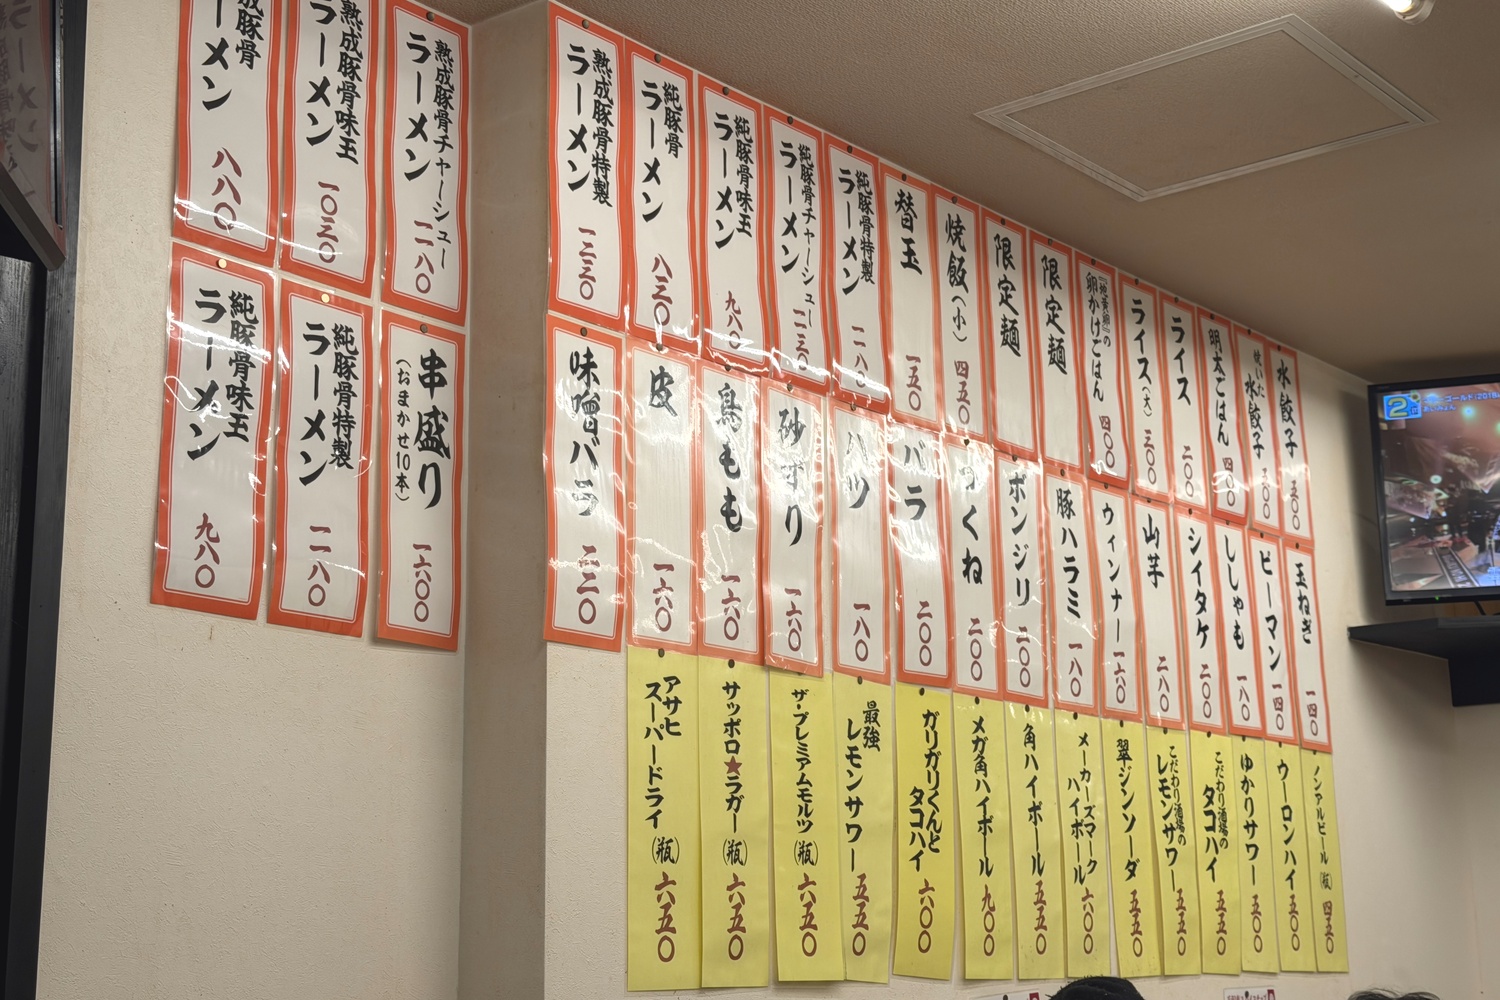 熟成豚骨チャーシュー
ラーメン
一一八〇
熟成豚骨味玉
ラーメン
一〇三〇
豚骨
ーメン
八八〇
串盛り
(おまかせ10本)
一六〇〇
純豚骨特製
ラーメン
一一八〇
純豚骨味玉
ラーメン
九八〇
水餃子
五〇〇
焼いた
水餃子
五〇〇
明太ごはん
四〇〇
ライス
二〇〇
ライス(大)
三〇〇
卵かけごはん
四〇〇
限定麺
限定麺
焼飯(小)
四五〇
替玉
一五〇
純豚骨特製
ラーメン
一一八〇
純豚骨チャーシュー
ラーメン
一一三〇
純豚骨味玉
ラーメン
九八〇
純豚骨
ラーメン
八三〇
熟成豚骨特製
ラーメン
一二三〇
玉ねぎ
一四〇
ピーマン
一四〇
ししゃも
一八〇
シイタケ
二〇〇
山芋
二八〇
ウィンナー
一六〇
豚ハラミ
一八〇
ボンジリ
二〇〇
つくね
二〇〇
バラ
二〇〇
ハツ
一八〇
砂ずり
一六〇
鳥もも
一六〇
皮
一六〇
味噌バラ
二二〇
ノンアルビール(瓶)
四五〇
ウーロンハイ
五〇〇
ゆかりサワー
五〇〇
こだわり酒場の
タコハイ
五五〇
こだわり酒場の
レモンサワー
五五〇
翠ジンソーダ
五五〇
メーカーズマーク
ハイボール
六〇〇
角ハイボール
五五〇
メガ角ハイボール
九〇〇
ガリガリくんと
タコハイ
六〇〇
最強
レモンサワー
五五〇
ザ・プレミアムモルツ(瓶)
六五〇
サッポロ★ラガー(瓶)
六五〇
アサヒ
スーパードライ(瓶)
六五〇
2